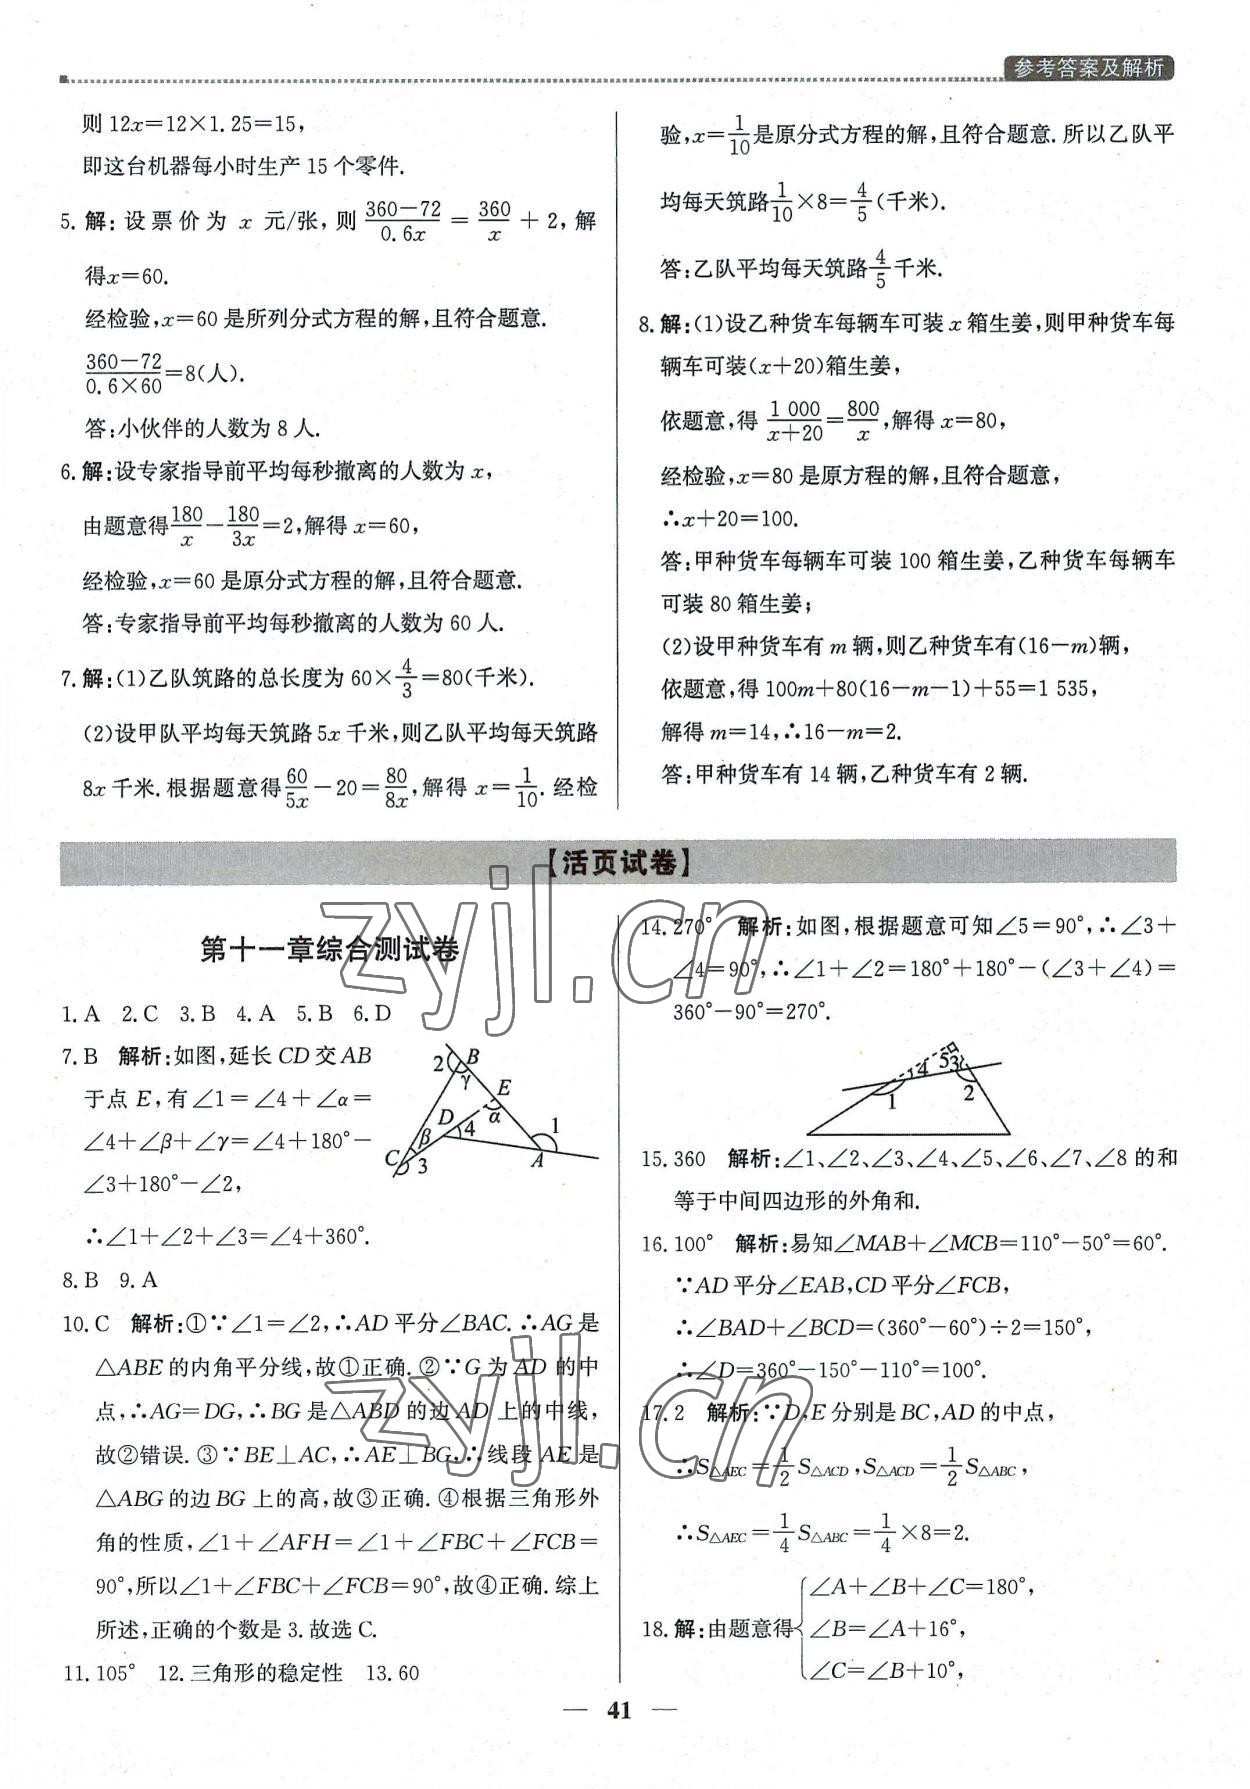 参考答案及解析
则 12x=12×1.25=15,
即这台机器每小时生产 15 个零件.
5. 解: 设票价为 x 元/张, 则 (360-72)/(0.6x) = 360/x + 2, 解
得x=60.
经检验,x=60 是所列分式方程的解,且符合题意.
(360-72)/(0.6×60)=8(人).
答:小伙伴的人数为 8 人.
6. 解:设专家指导前平均每秒撤离的人数为 x,
由题意得 180/x - 180/(3x) =2,解得 x=60,
经检验,x=60 是原分式方程的解,且符合题意.
答:专家指导前平均每秒撤离的人数为 60 人.
7. 解:(1)乙队筑路的总长度为 60×4/3=80(千米).
(2)设甲队平均每天筑路 5x 千米,则乙队平均每天筑路
8x 千米.根据题意得 60/(5x) -20= 80/(8x),解得 x=1/10.经检
验,x=1/10是原分式方程的解,且符合题意.所以乙队平
均每天筑路1/10×8=4/5(千米).
答:乙队平均每天筑路4/5千米.
8. 解:(1)设乙种货车每辆车可装 x 箱生姜,则甲种货车每
辆车可装(x+20)箱生姜,
依题意,得 1 000/(x+20)=800/x,解得 x=80,
经检验,x=80 是原方程的解,且符合题意,
∴x+20=100.
答:甲种货车每辆车可装 100 箱生姜,乙种货车每辆车
可装 80 箱生姜;
(2)设甲种货车有 m 辆,则乙种货车有(16-m)辆,
依题意,得 100m+80(16-m-1)+55=1 535,
解得 m=14,∴16-m=2.
答:甲种货车有 14 辆,乙种货车有 2 辆.
【活页试卷】
第十一章综合测试卷
1. A 2. C 3. B 4. A 5. B 6. D
7. B 解析:如图,延长 CD 交 AB
于点 E,有∠1=∠4+∠α=
∠4+∠β+∠γ=∠4+180°-
∠3+180°-∠2,
∴∠1+∠2+∠3=∠4+360°.
2 B γ E D α 1 4 β C 3 A
8. B 9. A
10. C 解析:①∵∠1=∠2,∴AD 平分∠BAC.∴AG 是
△ABE 的内角平分线,故①正确.②∵G 为 AD 的中
点,∴AG=DG,∴BG 是△ABD 的边 AD 上的中线,
故②错误.③∵BE⊥AC,∴AE⊥BG,∴线段 AE 是
△ABG 的边 BG 上的高,故③正确.④根据三角形外
角的性质,∠1+∠AFH=∠1+∠FBC+∠FCB=
90°,所以∠1+∠FBC+∠FCB=90°,故④正确.综上
所述,正确的个数是 3.故选 C.
11. 105° 12. 三角形的稳定性 13. 60
14. 270° 解析:如图,根据题意可知∠5=90°,∴∠3+
∠4=90°,∴∠1+∠2=180°+180°-(∠3+∠4)=
360°-90°=270°.
4 5 3 1 2
15. 360 解析:∠1、∠2、∠3、∠4、∠5、∠6、∠7、∠8 的和
等于中间四边形的外角和.
16. 100° 解析:易知∠MAB+∠MCB=110°-50°=60°.
∵AD 平分∠EAB,CD 平分∠FCB,
∴∠BAD+∠BCD=(360°-60°)÷2=150°,
∴∠D=360°-150°-110°=100°.
17. 2 解析:∵D,E 分别是 BC,AD 的中点,
∴S△AEC=1/2 S△ACD,S△ACD=1/2 S△ABC,
∴S△AEC=1/4 S△ABC=1/4×8=2.
18. 解:由题意得{∠A+∠B+∠C=180°,
∠B=∠A+16°,
∠C=∠B+10°,
— 41 —
zyjl.cn
zyjl.cn